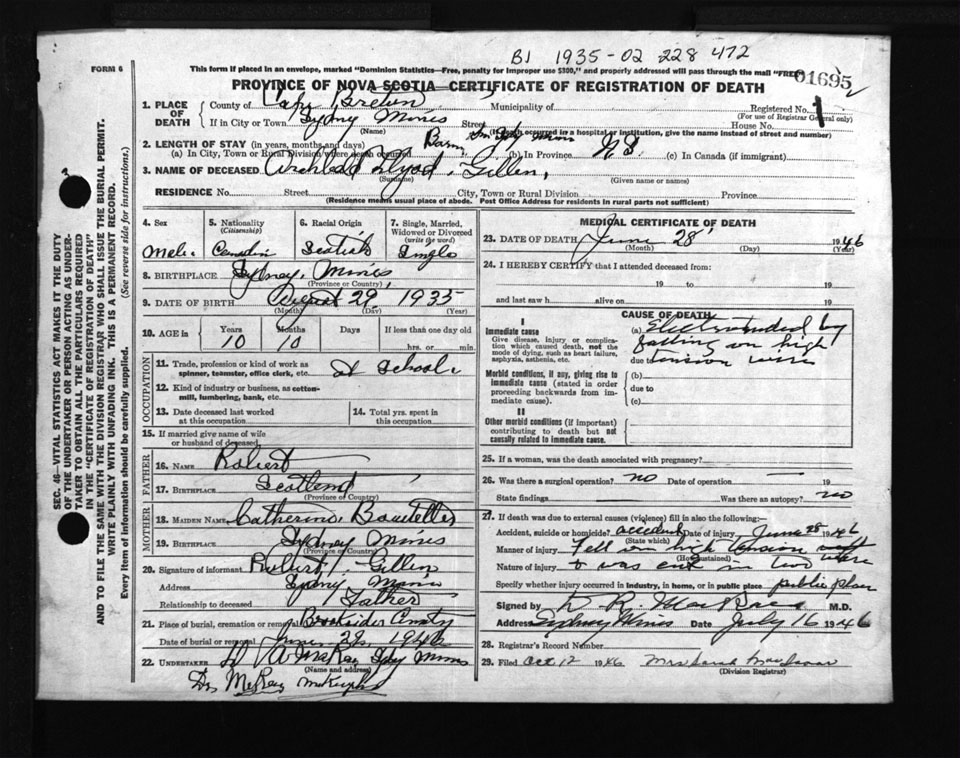 B1 1935-02 228 472
FORM 6
This form if placed in an envelope, marked "Dominion Statistics—Free, penalty for improper use $300," and properly addressed will pass through the mail "FREE"
01695
PROVINCE OF NOVA SCOTIA—CERTIFICATE OF REGISTRATION OF DEATH
1. PLACE OF DEATH
County of Cape Breton Municipality of Registered No. 1
(For use of Registrar General only)
If in City or Town Sydney Mines Street House No.
(Name) (If death occurred in a hospital or institution, give the name instead of street and number)
2. LENGTH OF STAY (in years, months and days)
(a) In City, Town or Rural Division where death occurred Born in Sydney Mines (b) In Province N S. (c) In Canada (if immigrant)
3. NAME OF DECEASED Archibald Gillen,
(Surname) (Given name or names)
RESIDENCE No. Street City, Town or Rural Division Province
(Residence means usual place of abode. Post Office Address for residents in rural parts not sufficient)
4. Sex Male
5. Nationality (Citizenship) Canadian
6. Racial Origin Scotish
7. Single, Married, Widowed or Divorced (write the word) Single
8. BIRTHPLACE Sydney Mines
(Province or Country)
9. DATE OF BIRTH August 29, 1935
(Month) (Day) (Year)
10. AGE in Years Months Days If less than one day old
10 10 hrs. or min.
OCCUPATION
11. Trade, profession or kind of work as spinner, teamster, office clerk, etc. at School
12. Kind of industry or business, as cotton-mill, lumbering, bank, etc.
13. Date deceased last worked at this occupation
14. Total yrs. spent in this occupation
15. If married give name of wife or husband of deceased
FATHER
16. NAME Robert
17. BIRTHPLACE Scotland
(Province or Country)
MOTHER
18. MAIDEN NAME Catherine
19. BIRTHPLACE Sydney Mines
(Province or Country)
20. Signature of informant Robert Gillen
Address Sydney Mines
Relationship to deceased Father
21. Place of burial, cremation or removal Brookside
Date of burial or removal June 1946
22. UNDERTAKER McKay Syd Mines
(Name and address)
MEDICAL CERTIFICATE OF DEATH
23. DATE OF DEATH June 28 1946
(Month) (Day) (Year)
24. I HEREBY CERTIFY that I attended deceased from:
19 to 19
and last saw h alive on 19
CAUSE OF DEATH
I
Immediate cause
Give disease, injury or complication which caused death, not the mode of dying, such as heart failure, asphyxia, asthenia, etc.
(a) by
falling on high
due tension wire
Morbid conditions, if any, giving rise to immediate cause (stated in order proceeding backwards from immediate cause).
(b)
due to
(c)
II
Other morbid conditions (if important) contributing to death but not causally related to immediate cause.
25. If a woman, was the death associated with pregnancy?
26. Was there a surgical operation? no Date of operation 19
State findings Was there an autopsy? no
27. If death was due to external causes (violence) fill in also the following:—
Accident, suicide or homicide? accident Date of injury June 28 1946
(State which)
Manner of injury Fell on high tension
(How sustained)
Nature of injury & was cut in two
Specify whether injury occurred in industry, in home, or in public place public place
Signed by D R M.D.
Address Sydney Mines Date July 16 1946
28. Registrar's Record Number
29. Filed Oct 12 1946 Mrs Sarah
(Division Registrar)
SEC. 46—VITAL STATISTICS ACT MAKES IT THE DUTY
OF THE UNDERTAKER OR PERSON ACTING AS UNDER-
TAKER TO OBTAIN ALL THE PARTICULARS REQUIRED
IN THE "CERTIFICATE OF REGISTRATION OF DEATH"
AND TO FILE THE SAME WITH THE DIVISION REGISTRAR WHO SHALL ISSUE THE BURIAL PERMIT.
WRITE PLAINLY WITH UNFADING INK. THIS IS A PERMANENT RECORD.
Every item of information should be carefully supplied. (See reverse side for instructions.)